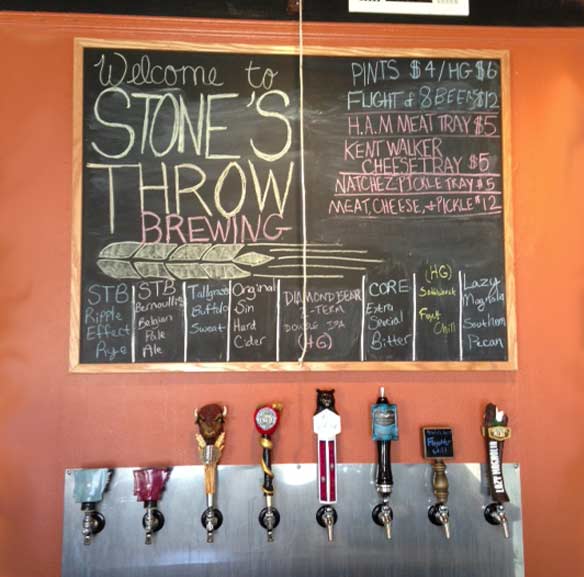 Welcome to
STONE'S
THROW
BREWING
PINTS $4/HG $6
FLIGHT of 8 BEERS $12
H.A.M MEAT TRAY $5
KENT WALKER
CHEESE TRAY $5
NATCHEZ PICKLE TRAY $5
MEAT, CHEESE, + PICKLE $12
STB
Ripple
Effect
Rye
STB
Bernoullis
Belgian
Pale
Ale
Tallgrass
Buffalo
Sweat
Original
Sin
Hard
Cider
DIAMOND BEAR
2-TERM
DOUBLE IPA
(HG)
CORE
Extra
Special
Bitter
(HG)
Fort
Chill
Lazy
Magnolia
Southern
Pecan
LAZY MAGNOLIA